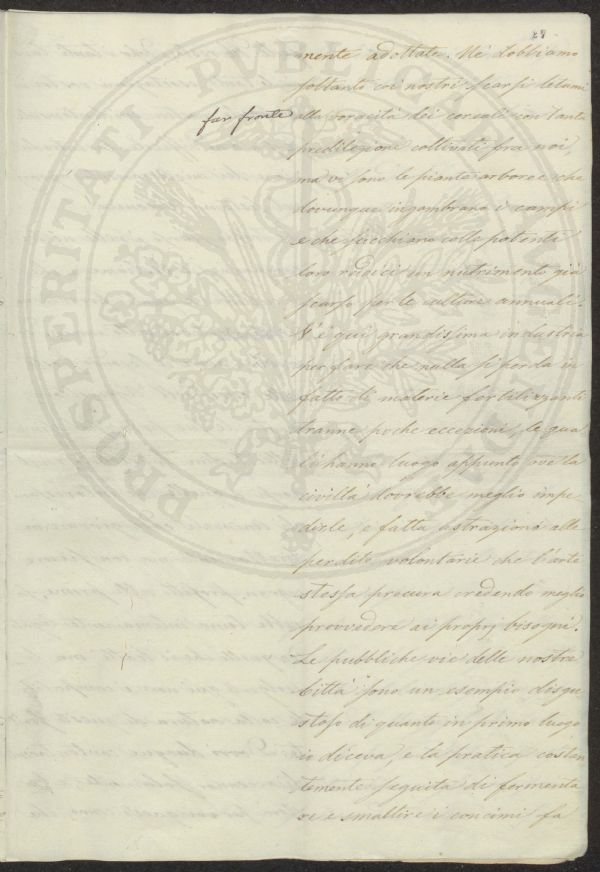 27
nente adottate. Né dobbiamo
soltanto coi nostri scarsi letami
far fronte
alla voracità dei cereali con tanta
predilezione coltivati fra noi,
ma vi sono le piante arboree che
dovunque ingombrano i campi
e che succhiano colle potenti
loro radici un nutrimento già
scarso per le culture annuali.
V'è qui grandissima industria
per fare che nulla si perda in
fatto di materie fertilizzanti
tranne poche eccezioni, le qua
li hanno luogo appunto ove la
civiltà dovrebbe meglio impe
dirle, e fatta astrazione alle
perdite volontarie che l'arte
stessa procura credendo meglio
provvedere ai proprj bisogni.
Le pubbliche vie delle nostre
Città sono un esempio disgu
stoso di quanto in primo luogo
io diceva, e la pratica costan
temente seguita di fermenta
re e smaltire i concimi fa
PROSPERITATI PUBLICAE